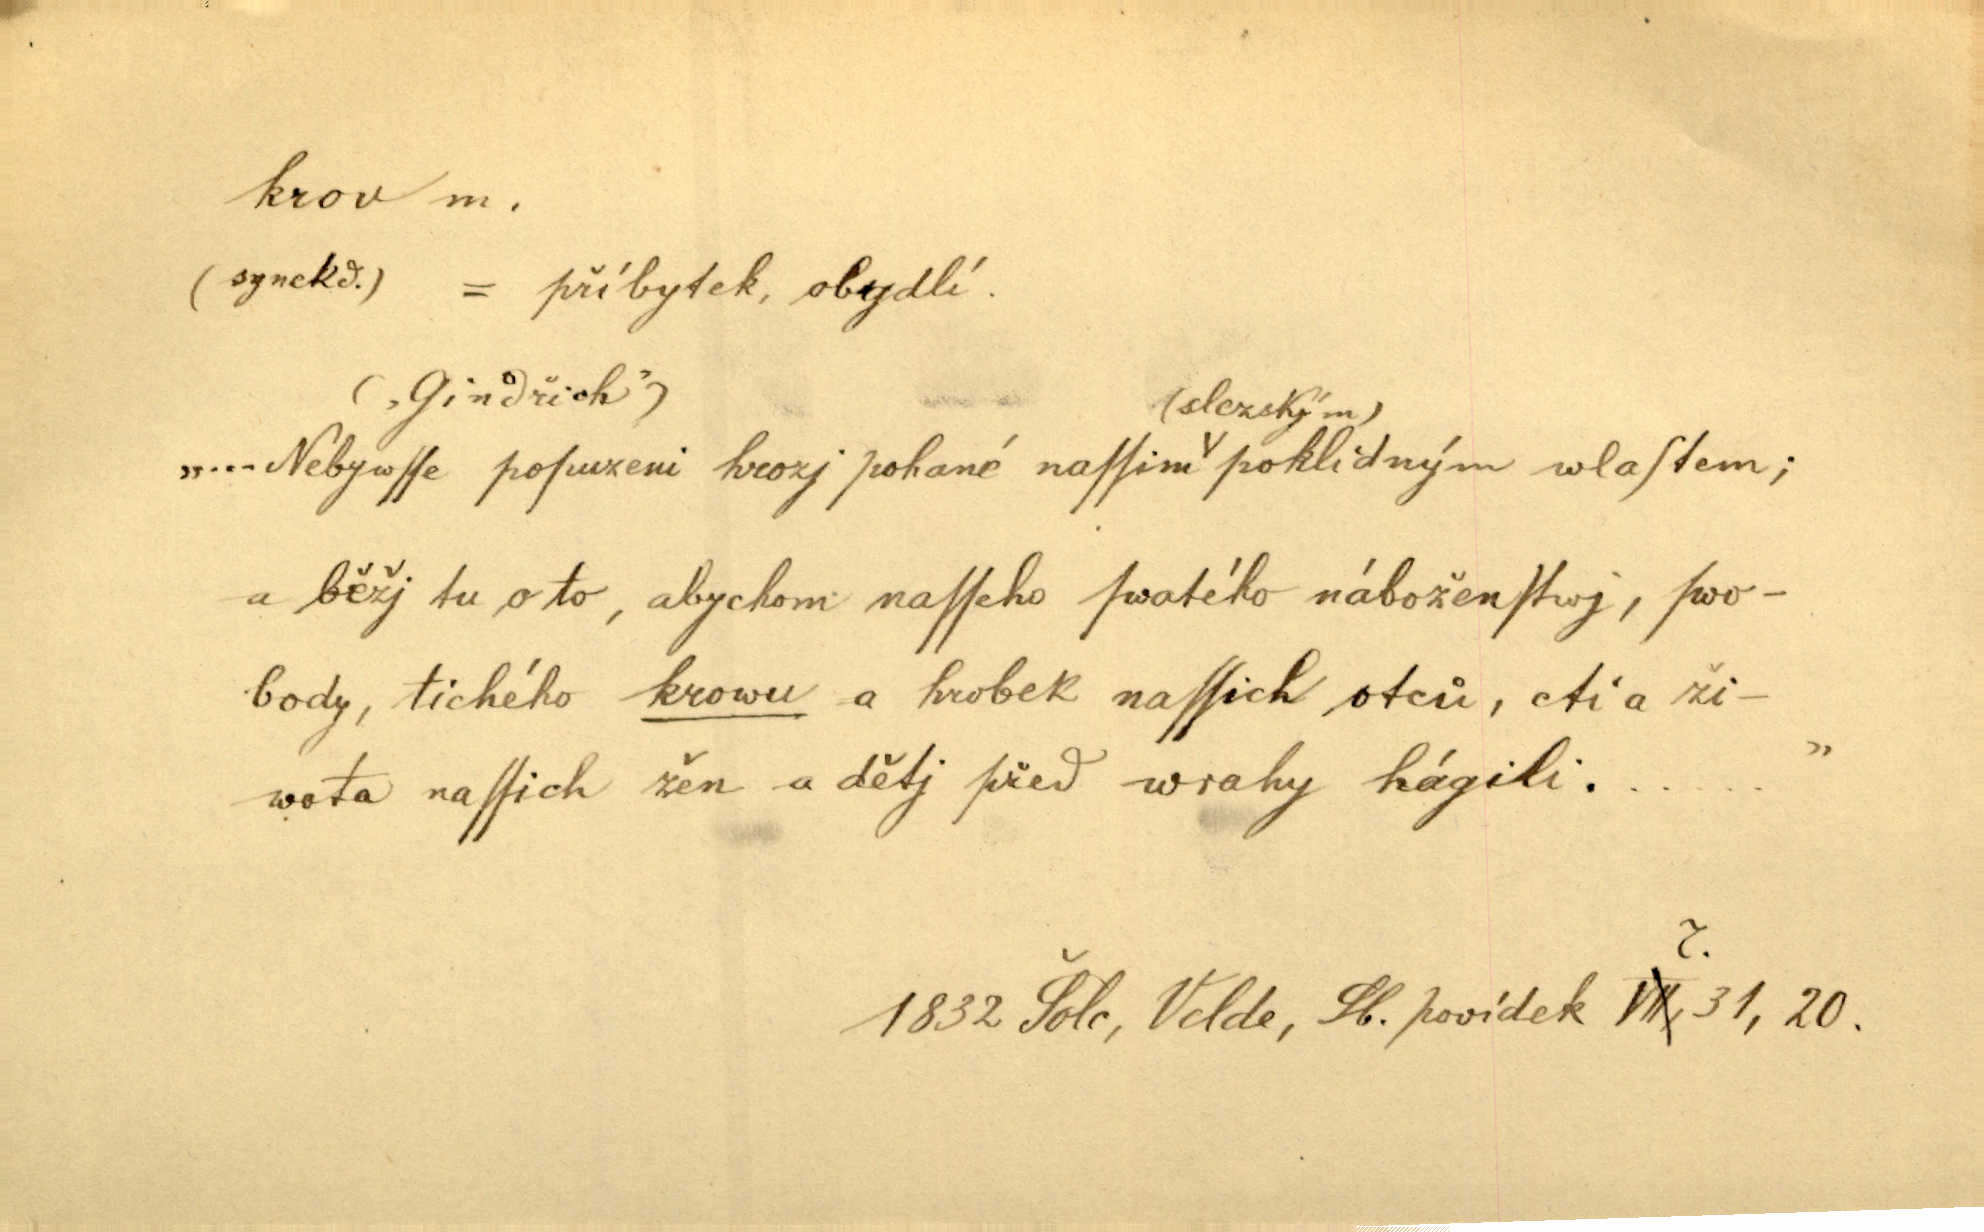 krov m.
(synekd.) = příbytek, obydlí.
(„Gindřich”)
(slezským)
„... Nebywſſe popuzeni hrozj pohané naſſim poklidným wlaſtem;
a běžj tu o to, abychom naſſeho ſwatého náboženſtwj, ſwo-
body, tichého krowu a hrobek naſſich otců, cti a ži-
wota naſſich žen a dětj před wrahy hágili. . . . . . ”
7.
1832 Šolc, Velde, Sb. povídek VII, 31, 20.